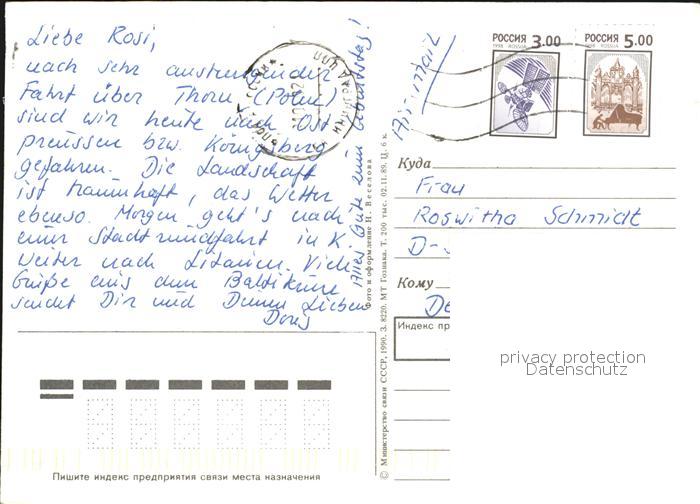 Liebe Rosi,
nach sehr anstrengender
Fahrt über Thorn (Polen)
sind wir heute nach Ost-
preussen bzw. Königsberg
gefahren. Die Landschaft
ist traumhaft, das Wetter
ebenso. Morgen geht's nach
einer Stadtrundfahrt in K.
weiter nach Litauen. Viele
Grüße aus dem Baltikum
sendet Dir und Deinen Lieben
Doris
Alles Gute zum Geburtstag!
Air mail
РОССИЯ 3.00
1998 ROSSIA
РОССИЯ 5.00
1998 ROSSIA
Куда
Frau
Roswitha Schmidt
D-
Кому
De
Индекс пр
privacy protection
Datenschutz
Фото и оформление Н. Веселова
© Министерство связи СССР, 1990. З. 8220. МТ Гознака. Т. 200 тыс. 02.11.89. Ц. 6 к.
Пишите индекс предприятия связи места назначения